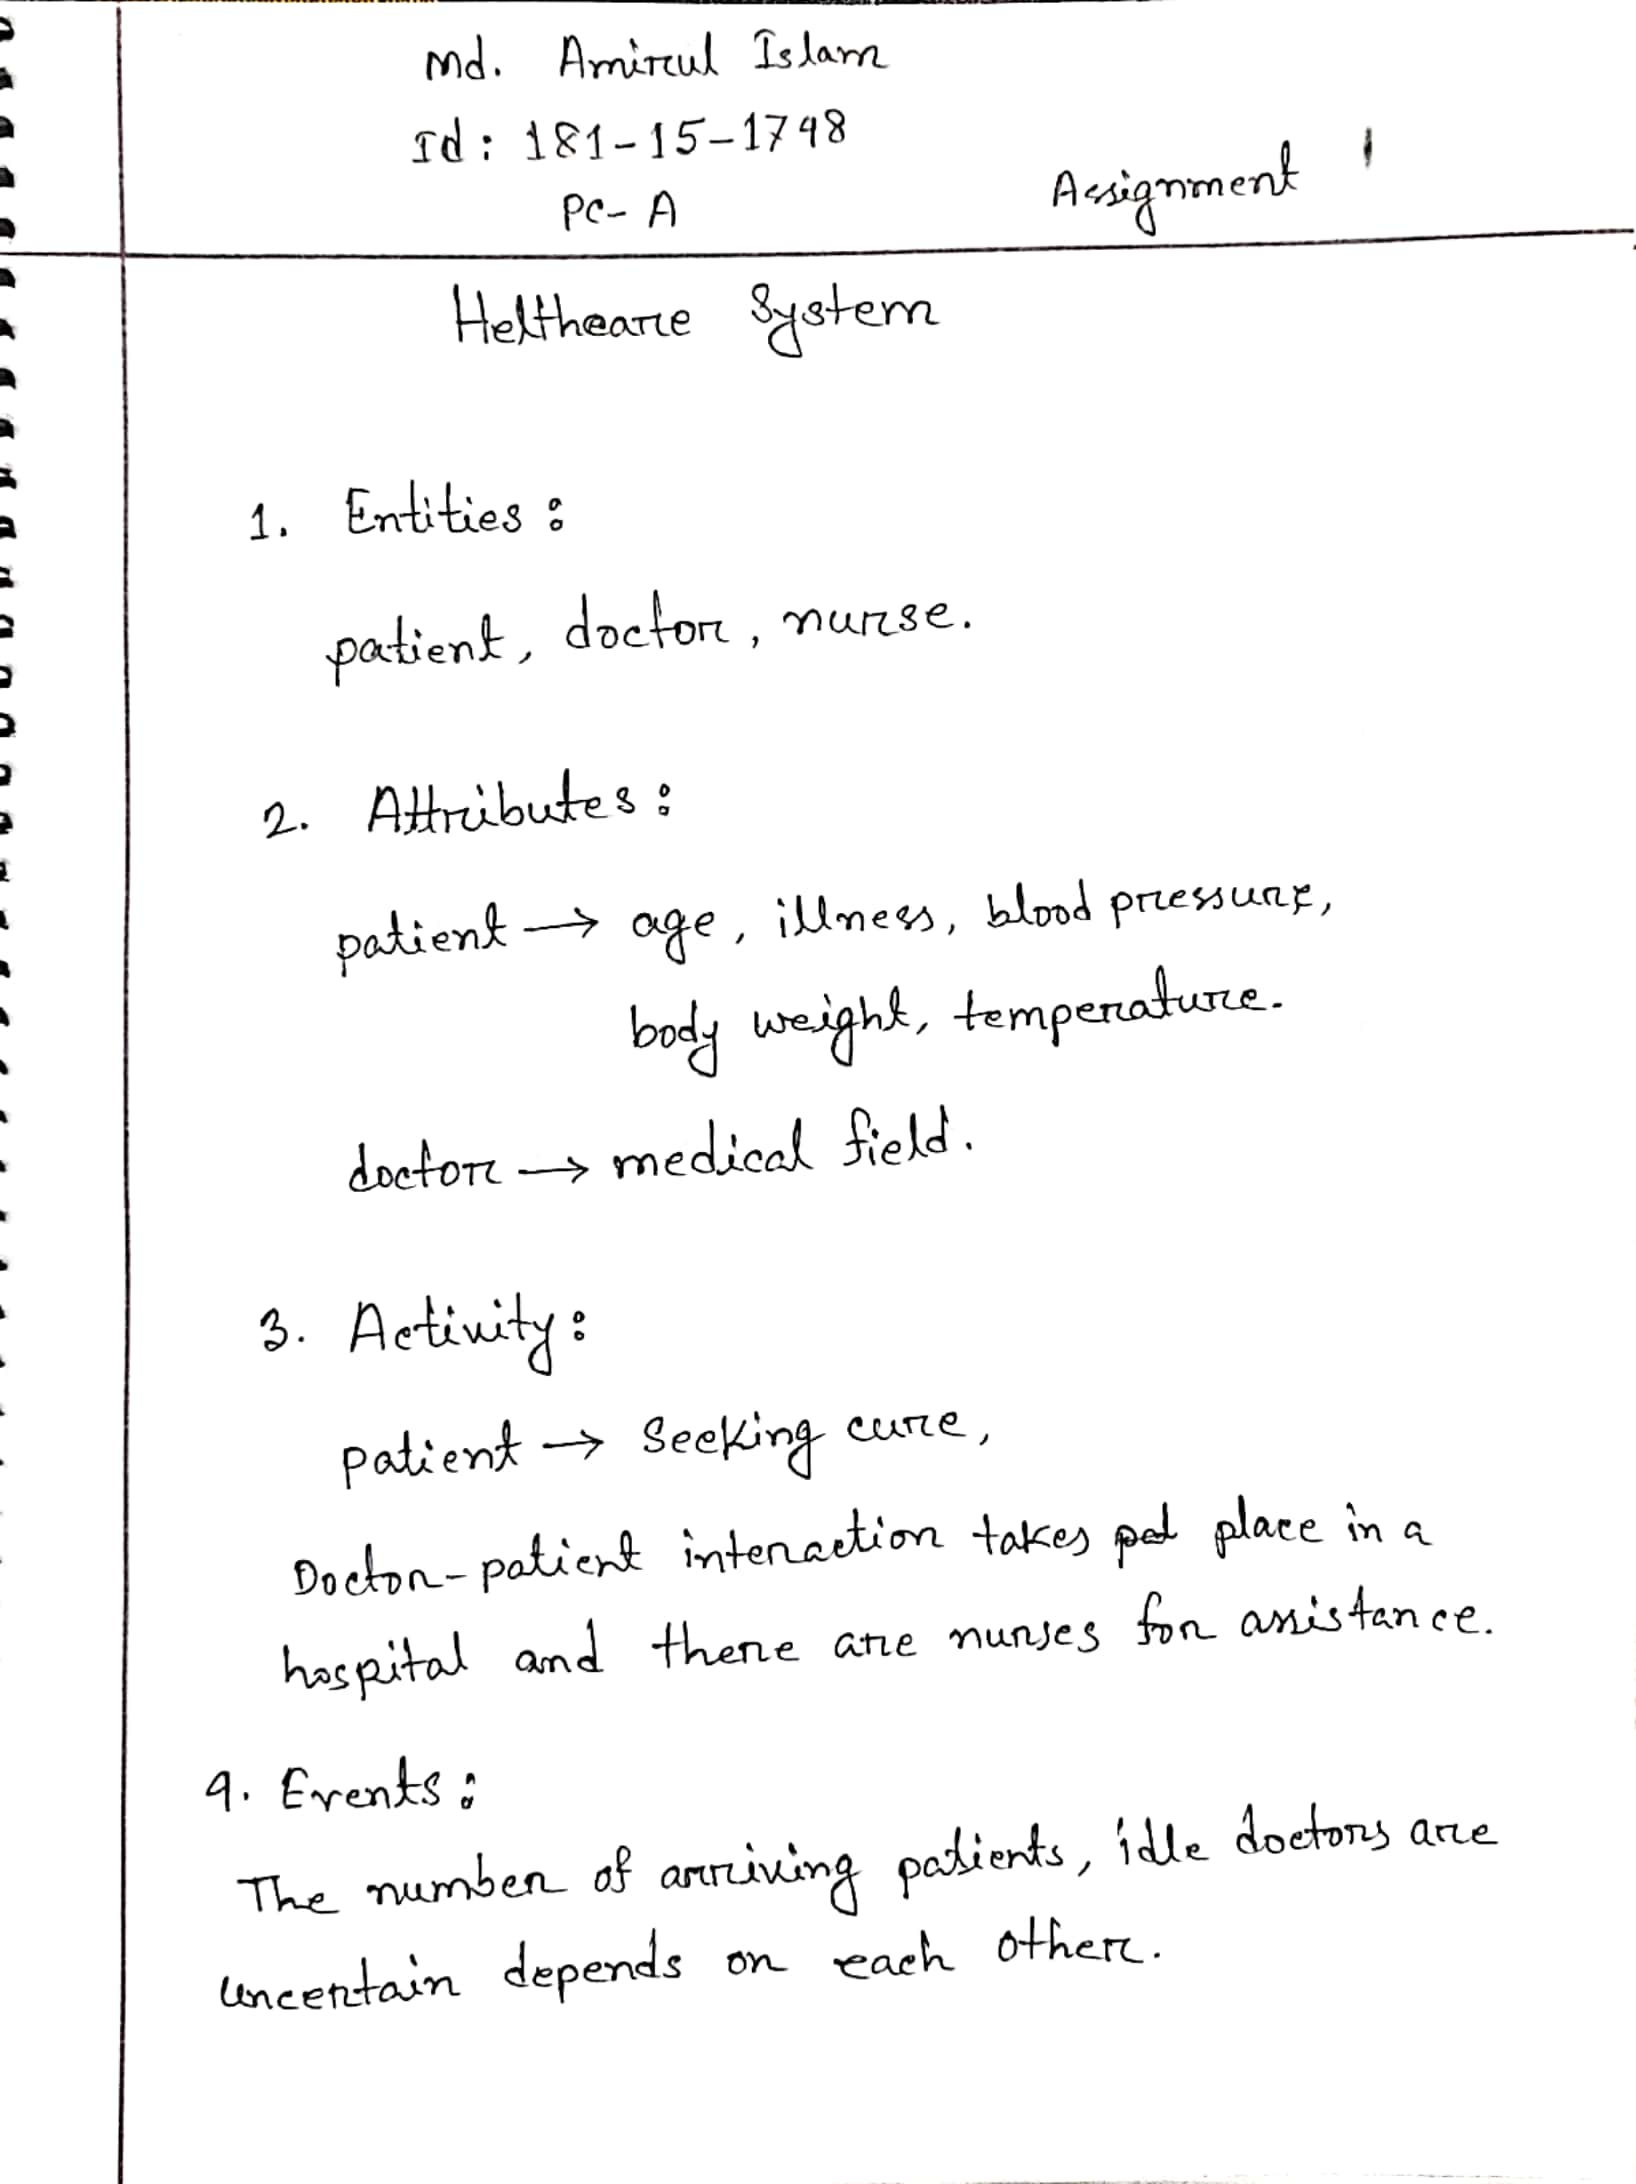 Md. Amirul Islam
Id: 181-15-1748
PC- A
Assignment
Helthcare System
1. Entities:
patient, doctor, nurse.
2. Attributes:
patient → age, illness, blood pressure,
body weight, temperature.
doctor → medical field.
3. Activity:
patient → Seeking cure,
Doctor-patient interaction takes place in a
hospital and there are nurses for assistance.
4. Events:
The number of arriving patients, idle doctors are
uncertain depends on each other.